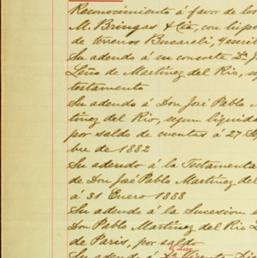 Reconocimiento á favor de los
M. Bringas & Cia, con hipo
de terrenos Bucareli,
Su adeudo á su consorte
Leño de Martinez del Rio, se
testamento
Su adeudo á Don José Pablo M
tínez del Rio, segun liquida
por saldo de cuentas á 27 Se
bre de 1882
Su adeudo á la Testamenta
de Don José Pablo Martinez del
á 31 Enero 1888
Su adeudo á la Sucesion
Don Pablo Martinez del Rio
de Paris, por saldo
Su adeudo á